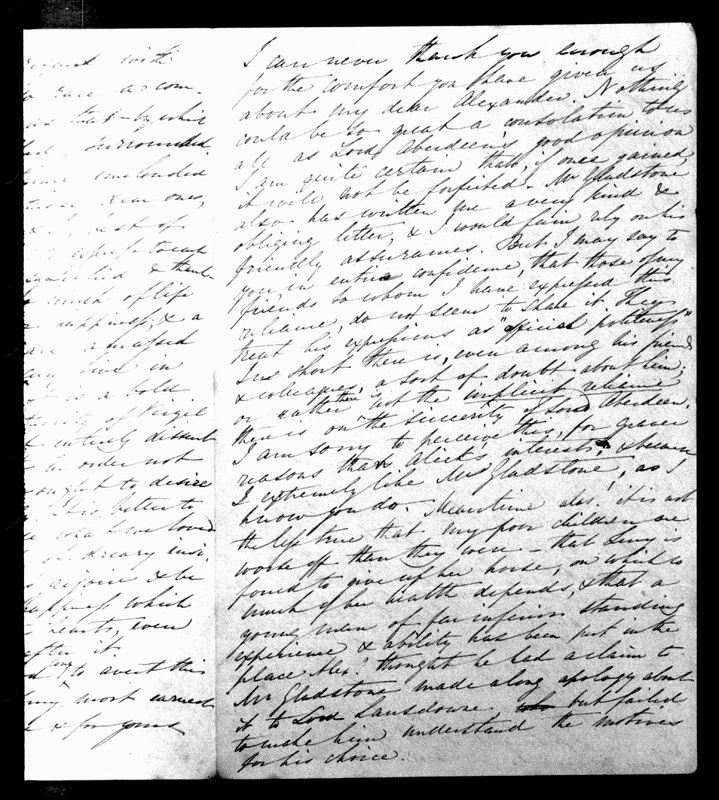 with
to
a com-
by which
surrounded.
unclouded
dear ones,
last of
express to each
& thank
of life
happiness, & a
amassed
live in
is a bold
of Virgil
entirely dissent
in order not
ought to desire
is better to
we loved
dreary
rejoice & be
happiness which
hearts, even
after it.
long to avert this
my most earnest
& for yours
I can never thank you enough
for the comfort you have given us
about my dear Alexander. Nothing
could be so great a consolation to us
all as Lord Aberdeen's good opinion
I am quite certain that, if once gained
it will not be forfeited. Mr Gladstone
also has written me a very kind &
obliging letter, & I would fain rely on his
friendly assurances. But I may say to
you in entire confidence, that those of my
friends to whom I have expressed this
reliance, do not seem to share it. They
treat his expressions as "official politeness"
In short there is, even among his friends
& colleagues, a sort of doubt about him;
or rather there is not the implicit reliance
there is on the sincerity of Lord Aberdeen.
I am sorry to perceive this, for graver
reasons than Alick's interests, & because
I extremely like Mr Gladstone, as I
know you do. Meantime alas! it is not
the less true that my poor children are
worse off than they were – that Lucy is
found to give up her horse, on which so
much of her health depends, & that a
young man of far inferior standing
experience & ability has been put in the
place Alexr thought he had a claim to
Mr Gladstone made a long apology about
it to Lord Lansdowne. but failed
to make him understand the motives
for his choice.